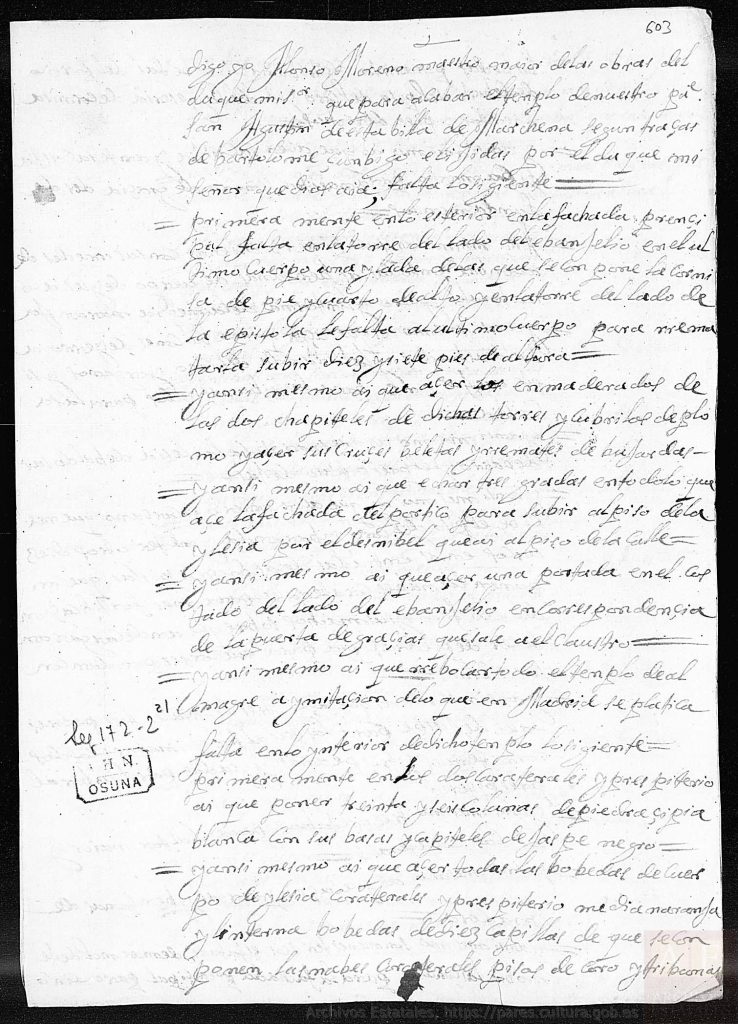 603
digo yo Alonso Moreno maestro maior delas obras del
duque mi sr que para acabar el templo de nuestro pe.
San Agustin de esta bila de Marchena segun traças
de bartolome çunbigo elijidas por el duque mi
señor que dios aia; falta lo sigiente =
= primera mente en lo esterior en la fachada prenci
pal falta en la torre del lado del ebanjelio en el ul
timo cuerpo una ylada delas que se con pone la corni
sa de pie y cuarto de alto y en la torre del lado de
la epistola le falta al ultimo cuerpo para rrema
tarla subir diez y siete pies de altura =
= y ansi mesmo ai que açer los enmaderados de
las dos chapiteles de dichas torres y cubrilos de plo
mo y açer sus cruçes beletas y rremates de bujardas -
= y ansi mesmo ai que echar tres gradas en todo lo que
açe la fachada del portico para subir al piso de la
yglesia por el desnibel que ai al piso de la calle =
= y ansi mesmo ai que açer una portada en el cos
tado del lado del ebanjelio en correspondençia
de la puerta de graçias que sale a el claustro =
= y ansi mesmo ai que rrebocar todo el templo de al
magre a ymitaçion de lo que en Madrid se platica
falta en lo ynterior de dicho templo lo sigiente =
primera mente en los dos coraterales y prespiterio
ai que poner treinta y seis colunas de piedra çipia
blanca con sus basas y capiteles de jaspe negro =
= y ansi mesmo ai que açer todas las bobedas de cuer
po de yglesia coraterales y prespiterio media naranja
y linterna bobedas de diez capillas de que se con
ponen las nabes coraterales pisos de coro y tribunas
Leg 172-2 21
H N
OSUNA
Archivos Estatales, https://pares.cultura.gob.es